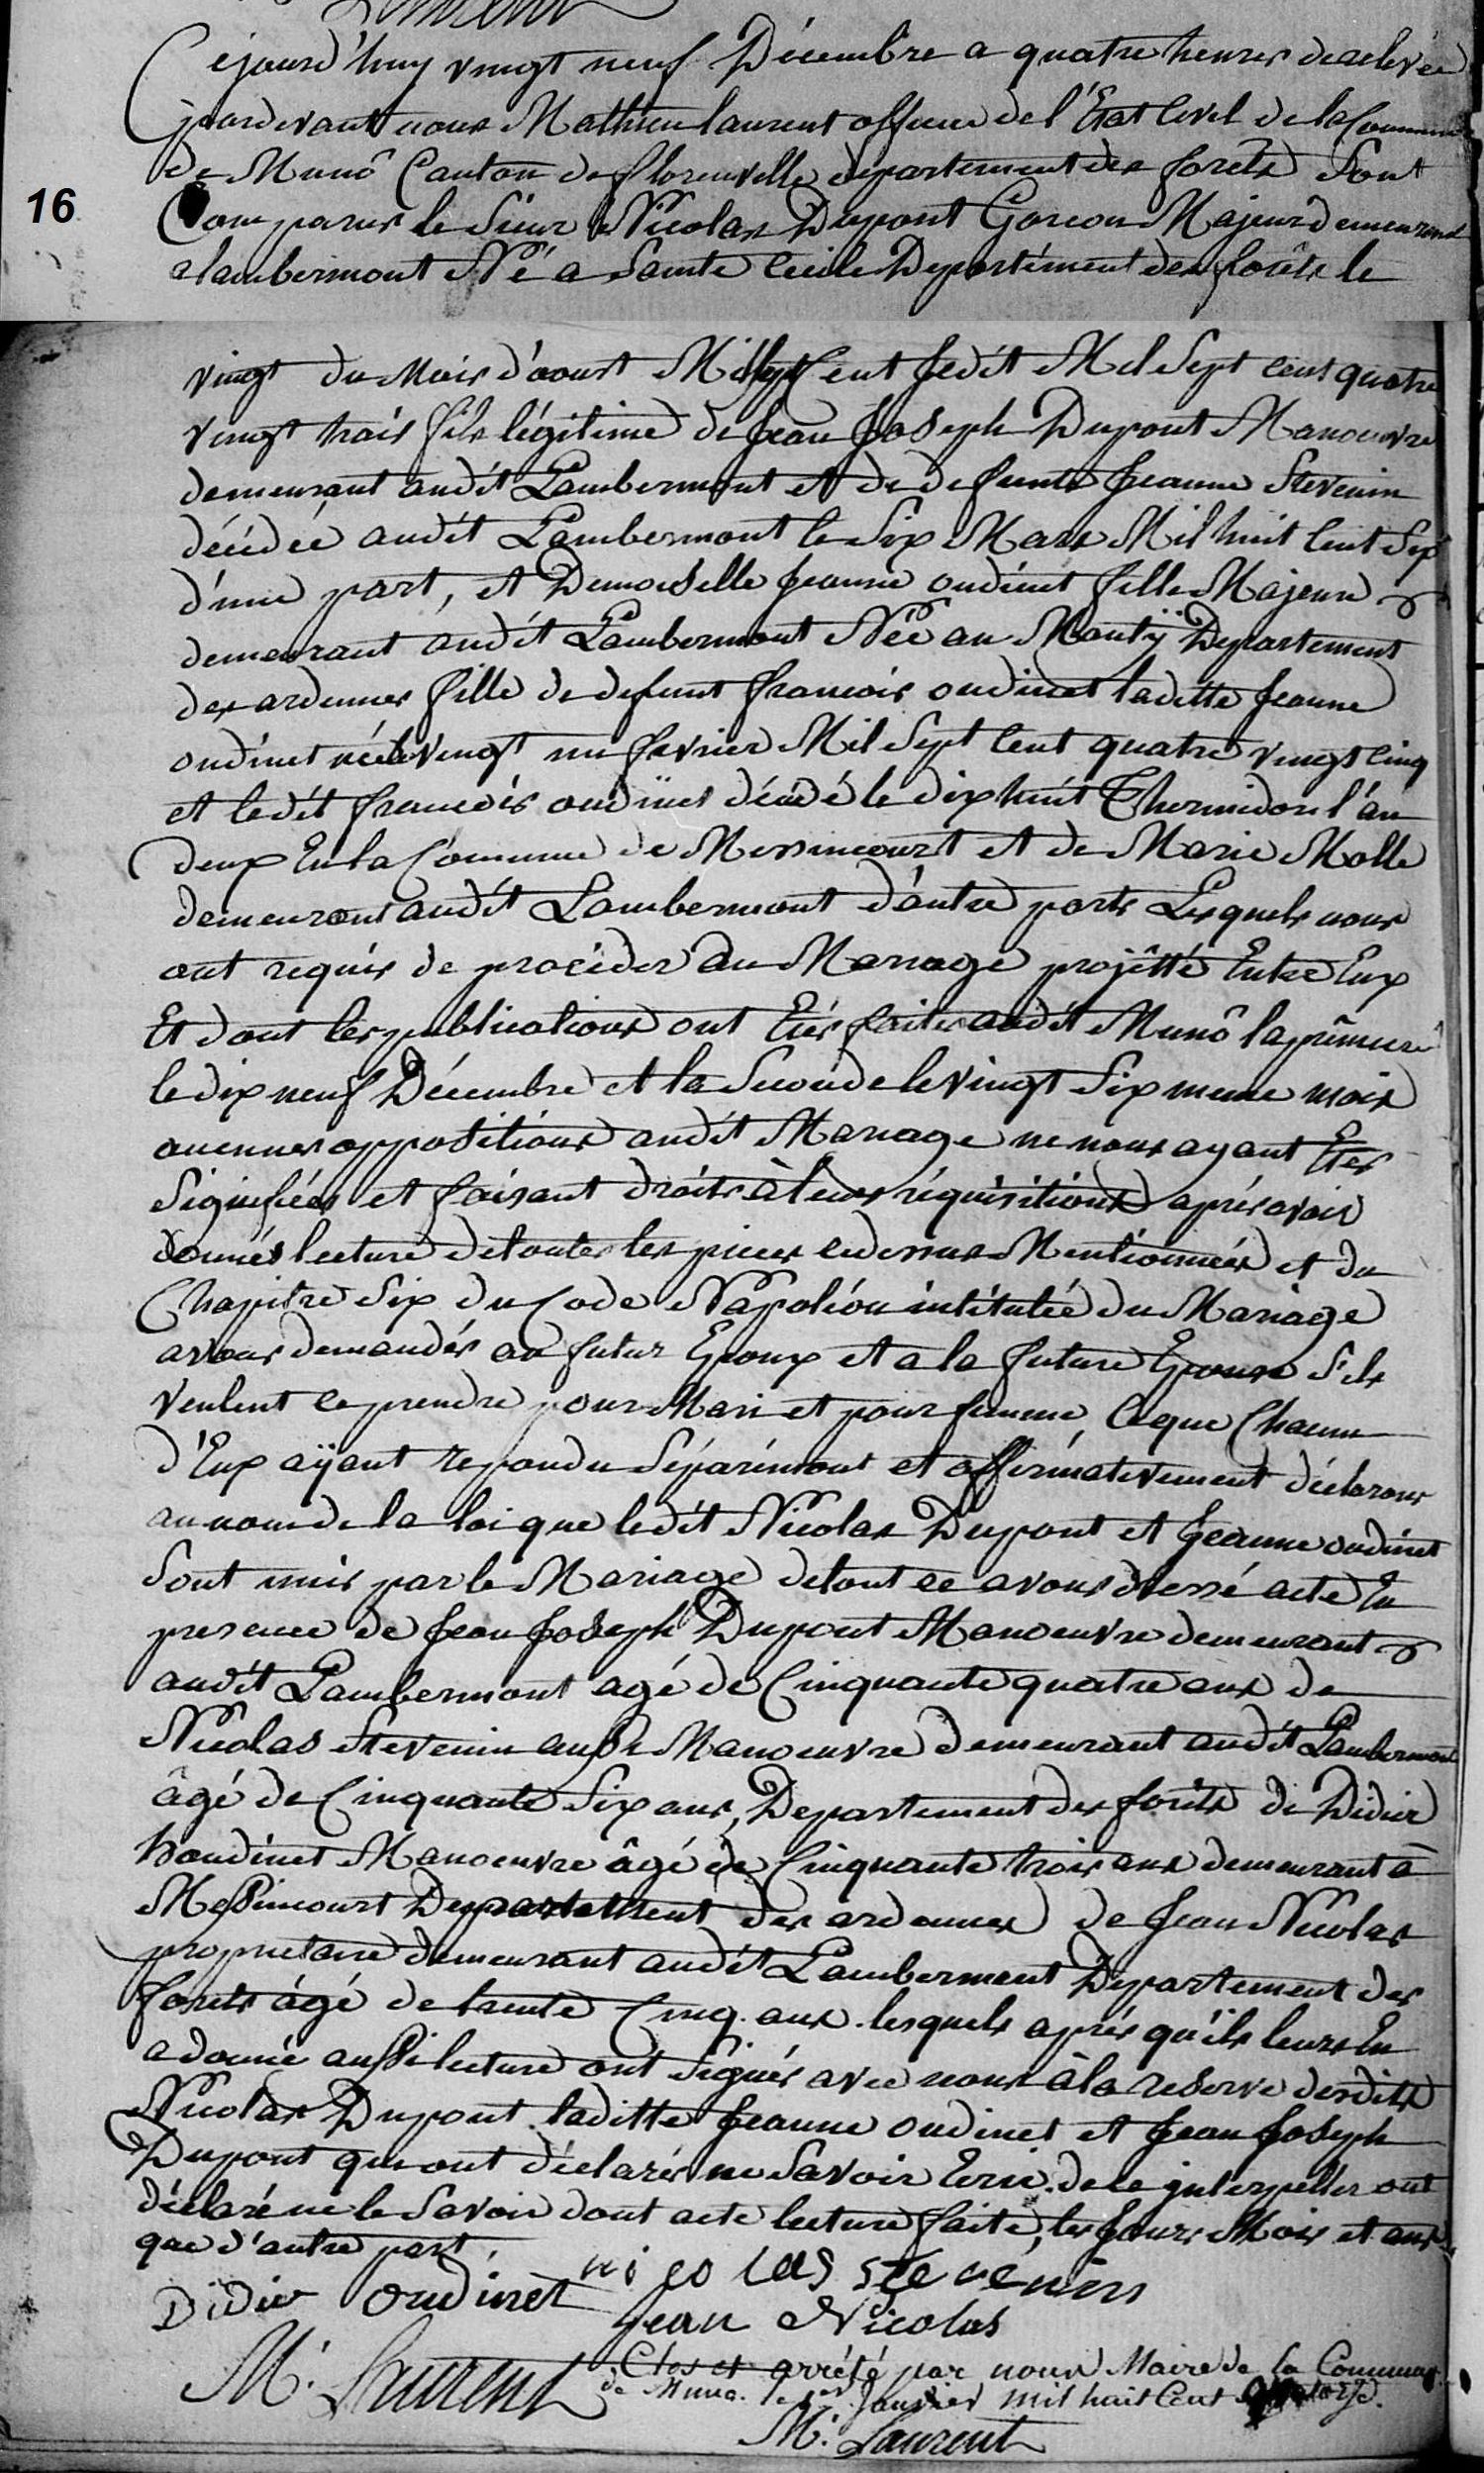 Laurent
Cejourd'huy vingt neuf Décembre a quatre heures derelevée
pardevant nous Mathieu laurent officier de l'Etat Civil de la Commune
de Munô Canton de florenville département des forêts Sont
16
Comparus le Sieur Nicolas Dupont Garcon Majeur demeurant
a lambermont Né a Sainte Cecile Departément des forêts le
vingt du Mois d'aoust Mil Sept Cent Jedit Mil Sept cent quatre
vingt trois fils légitime de Jean Joseph Dupont Manoeuvre
demeurant audit Lambermont et de defunte Jeanne Stevenin
décédée audit Lambermont le Six Mars Mil huit Cent Six
d'une part, et Demoiselle Jeanne oudinet fille Majeure
demeurant audit Lambermont Née au Mautÿ Departement
des ardennes fille de defunt francois oudinet laditte Jeanne
oudinet née le vingt un fevrier Mil Sept Cent quatre vingt Cinq
et ledit francois oudinet décédé le dix huit Thermidor l'an
deux En la Commune de Messincourt et de Marie Molle
demeurant audit Lambermont d'autre parts Lesquels nous
ont requis de procéder au Mariage projêtté Entre Eux
Et dont les publications ont Etés faites audit Munô la prêmiere
le dix neuf Décembre et la Seconde le vingt Six meme mois
aucunes oppositions audit Mariage ne nous ayant Etes
Signifiées et faisant droits à leurs réquisitions aprés avoir
donnés lecture de toutes les pieces cidessus Mentionnées et du
Chapitre Six du Code Napoléon intitulée du Mariage
avons demandés au futur Epoux et a la future Epouse S'ils
veulent ce prendre pour Mari et pour femme, Ceque Chacun
d'Eux aÿant repondu Séparément et affirmativement déclarons
au nom de la loi que ledit Nicolas Dupont et Jeanne oudinet
Sont unis par le Mariage de tout ce avons dressé acte En
presence de Jean Joseph Dupont Manoeuvre demeurant
audit Lambermont agé de Cinquante quatre ans de
Nicolas Stevenin aussi Manoeuvre demeurant audit Lambermont
âgé de Cinquante Six ans, Departement des forêts de Didier
houdinet Manoeuvre âgé de Cinquante trois ans demeurant à
Messincourt Departement des ardennes de Jean Nicolas
proprietaire demeurant audit Lambermont Departement des
forets âgé de trente Cinq ans lesquels aprés qu'ils leurs En
a donné aussi lecture ont Signés avec nous à la reserve desdits
Nicolas Dupont laditte Jeanne oudinet et Jean Joseph
Dupont qui ont déclarés ne Savoir Ecrire de ce interpellés ont
déclaré ne le Savoir dont acte lecture faite, les Jours Mois et ans
que d'autre part.
nicolas stevenin
Didier oudinet
Jean Nicolas
M. Laurent
Clos et arrêté par nous Maire de la Commune
de Muno le 1er Janvier mil huit Cent
M. Laurent